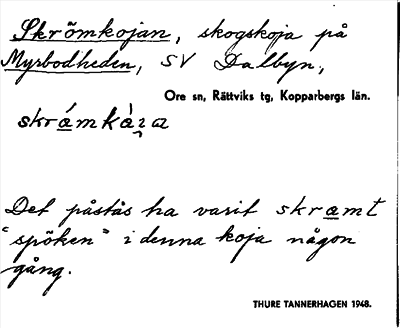 Skrömkojan, skogskoja på
Myrbodheden, SV Dalbyn,
Ore sn, Rättviks tg, Kopparbergs län.
Det påstås ha varit skramt
"spöken" i denna koja någon
gång.
THURE TANNERHAGEN 1948.